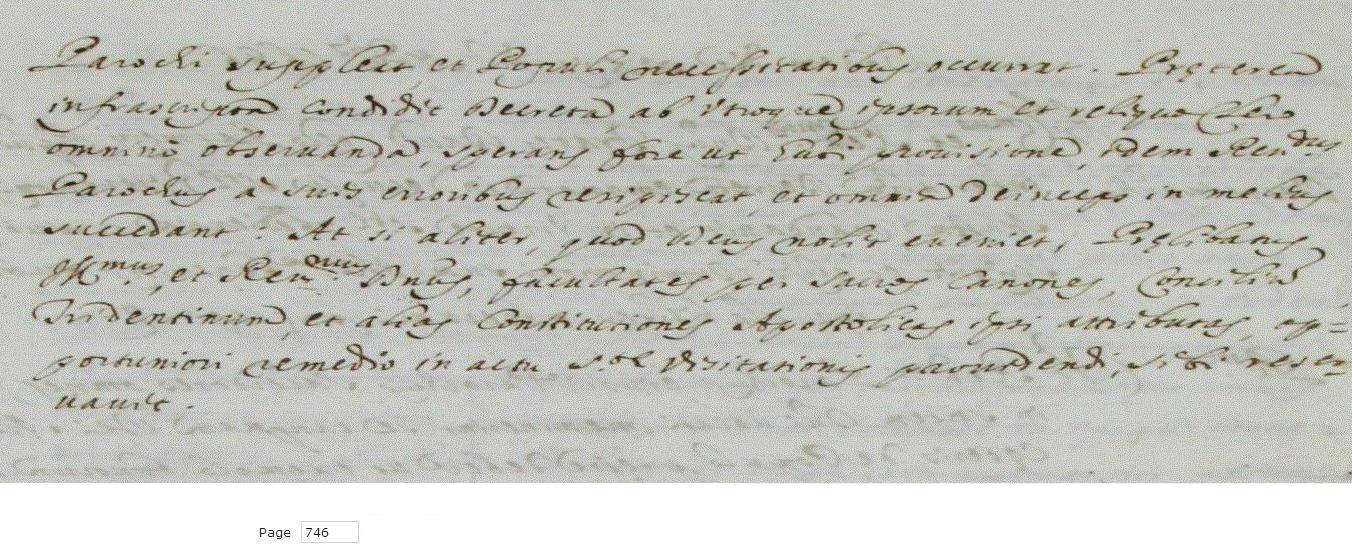 Parochi suppleat et Populi necessitatibus occurrat. Pręterea
infrascripta condidit Decreta ab utroque ipsorum et reliquo Clero
omninò observanda, sperans fore ut huĩ provisione, idem Ren^dus
Parochus à suis erroribus resipiscat, et omnia deinceps in melius
succedant: At si aliter, quod Deus nolit eveniet, Pręlibatus
Ill^mus, et Rev^mus Dnus, facultates per Sacros Canones, Concilium
Tridentinum, et alias Constitutiones Apostolicas ipsi attributas, op=
portuniori remedio in actu S.^ae Visitationis providendi, sibi reser=
vavit.
Page 746